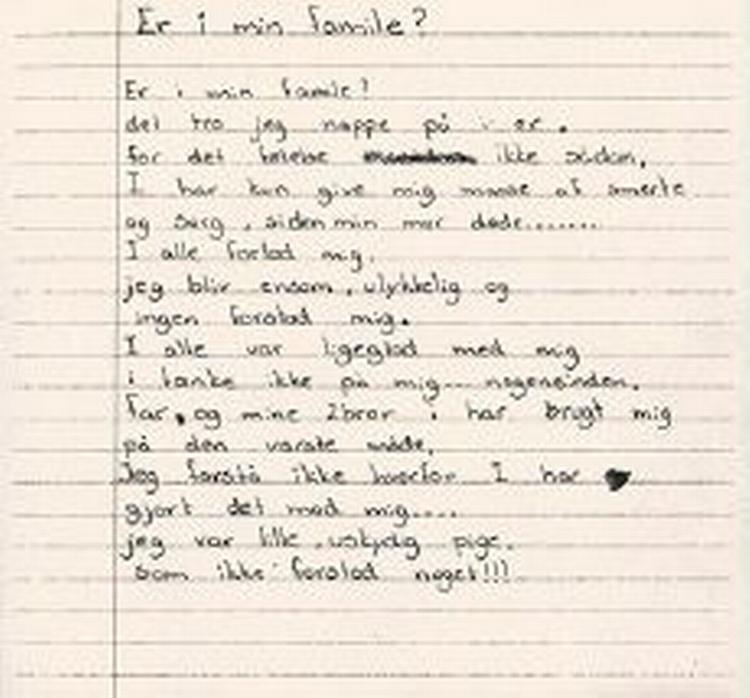 Er i min famile?
Er i min famile?
det tro jeg nappe på i er.
for det ikke sådan.
I har kun give mig masse af smerte
og sorg, siden min mor døde.......
I alle forlod mig.
jeg blir ensom, ulykkelig og
ingen forstod mig.
I alle var ligeglad med mig
i tanke ikke på mig... nogensinden.
far, og mine 2bror i har brugt mig
på den varste måde.
Jeg forstå ikke hvorfor I har
gjort det mod mig....
jeg var lille, uskyldig pige.
som ikke forstod noget!!!